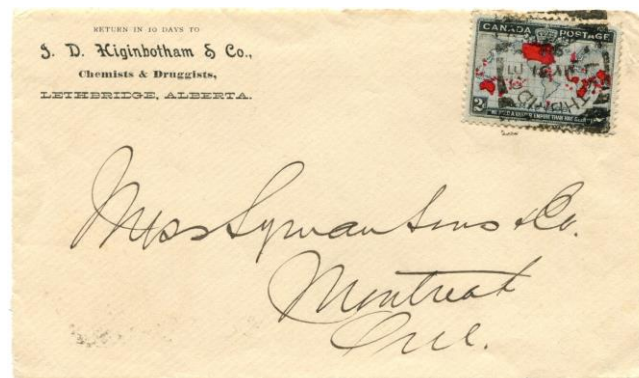 RETURN IN 10 DAYS TO
J. D. Higinbotham & Co.,
Chemists & Druggists,
LETHBRIDGE, ALBERTA.
CANADA POSTAGE
2
Mess Lyman Sons & Co.
Montreal
Que.